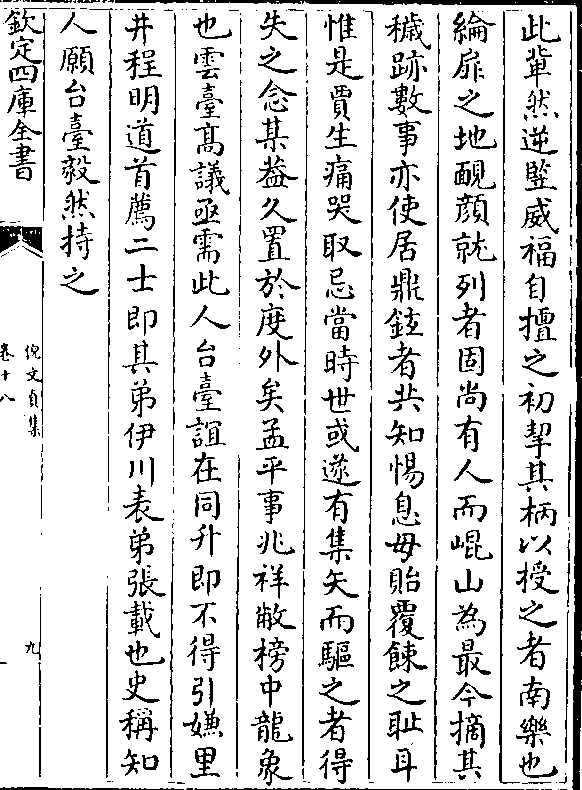 此輩然逆監威福自擅之初挈其柄以授之者南樂也
綸扉之地靦顔就列者固尚有人而崐山為最今摘其
穢跡數事亦使居鼎鉉者共知惕息毋貽覆餗之耻耳
惟是賈生痛哭取忌當時世或遂有集矢而驅之者得
失之念某葢久置於度外矣孟平事兆祥敝榜中龍象
也雲臺髙議亟需此人台臺誼在同升即不得引嫌里
井程明道首薦二士即其弟伊川表弟張載也史稱知
人願台臺毅然持之
欽定四庫全書
倪文貞集
卷十八
九